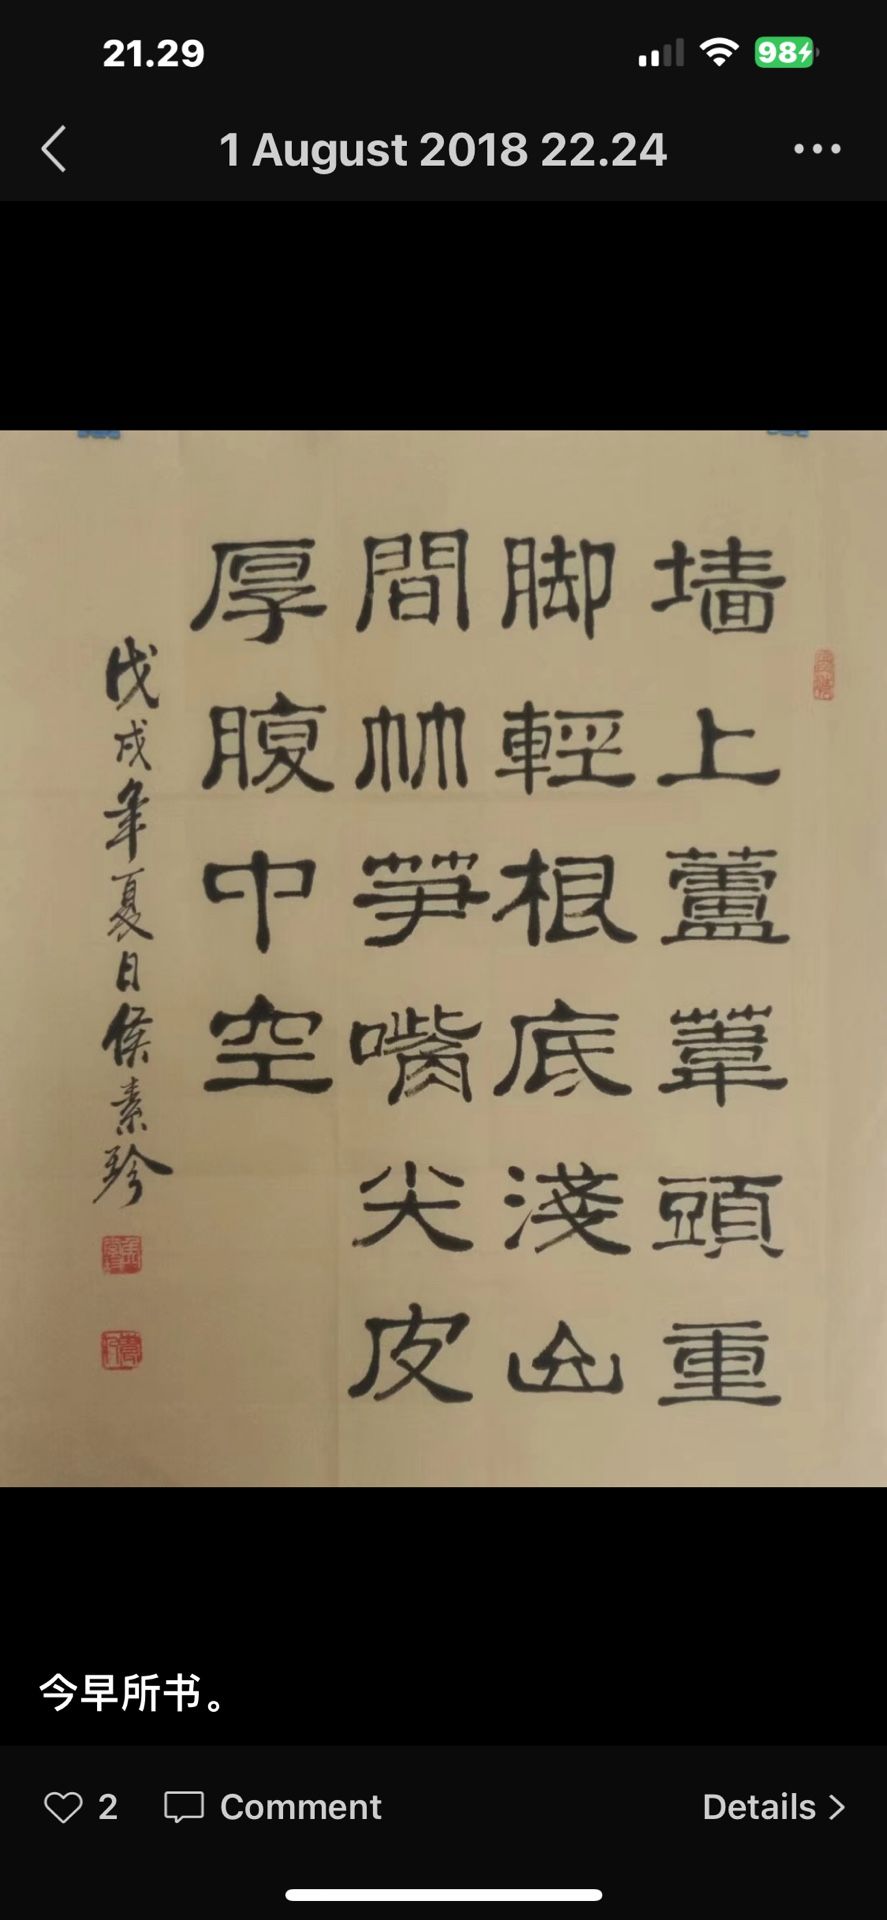 21.29
98
1 August 2018 22.24
墙上蘆葦頭重
脚輕根底淺山
間竹笋嘴尖皮
厚腹中空
戊戌年夏日侯素珍
今早所书。
2
Comment
Details